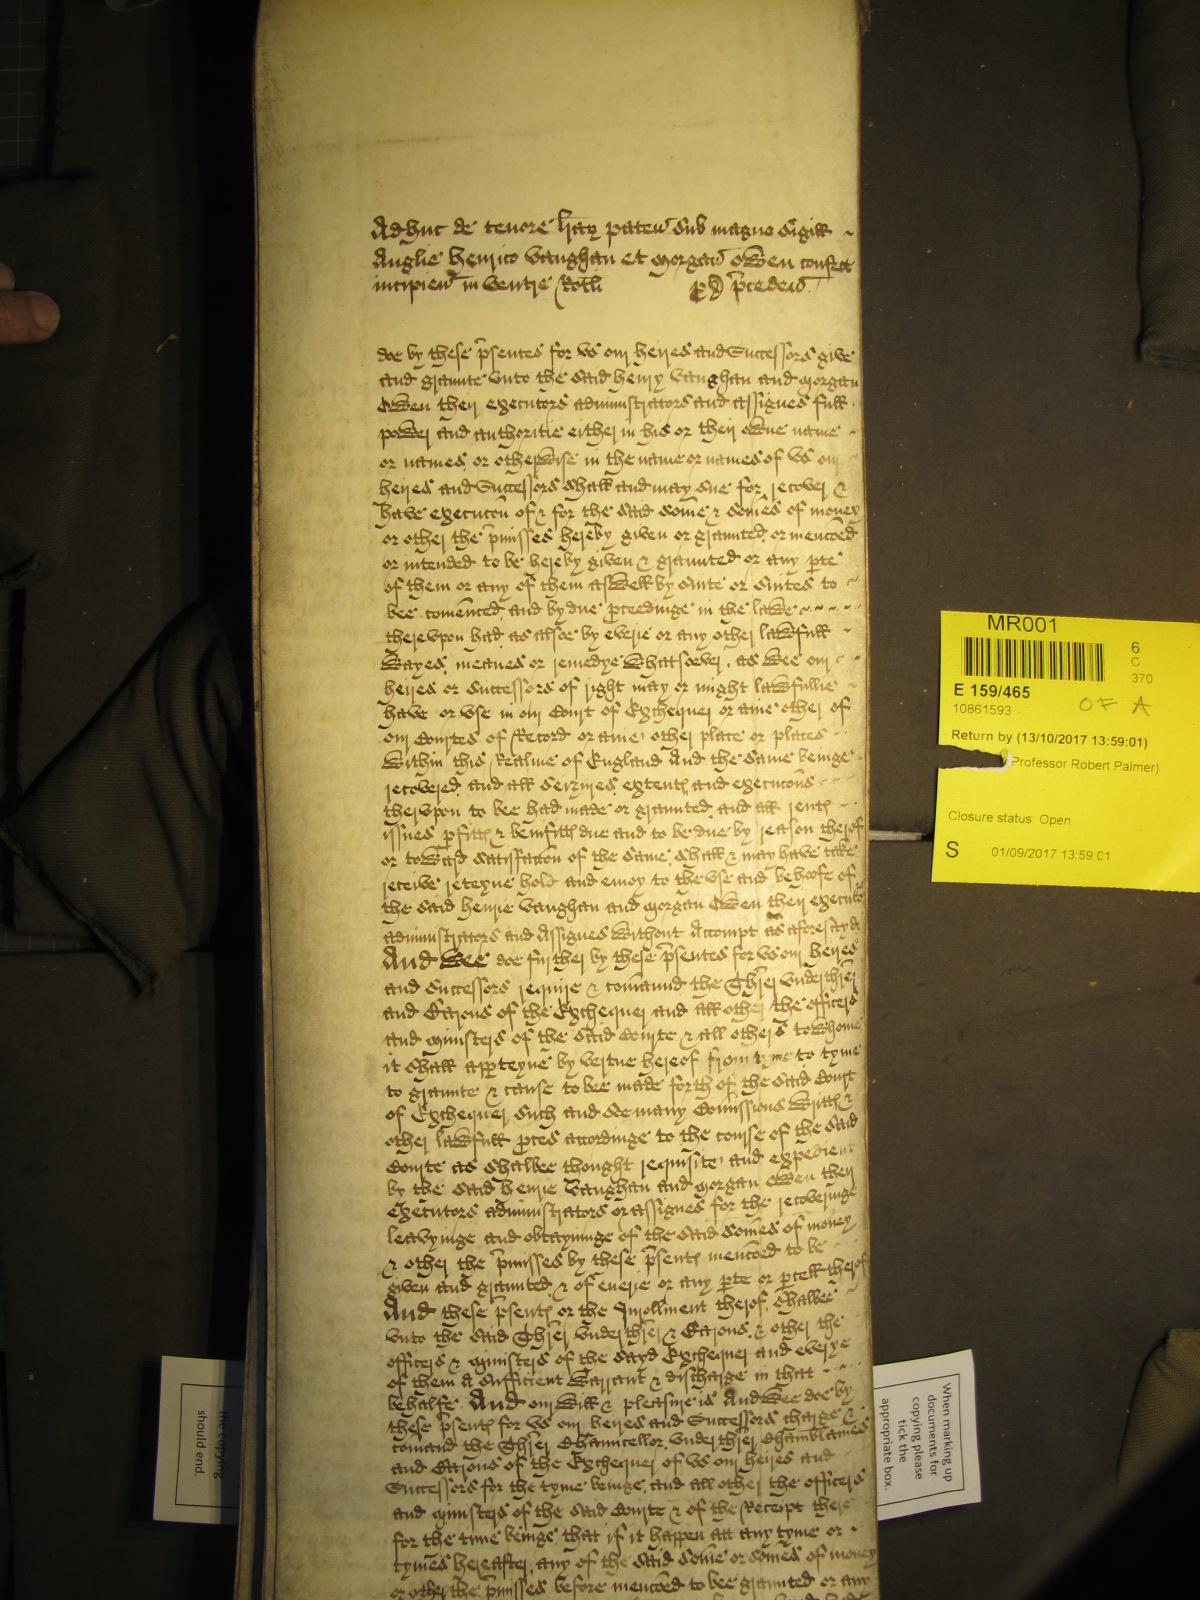 Adhuc de tenore lrar̄ paten̄ sub magno sigill
Anglie henrico vaughan et morgan owen confect
incipien̄ in ventre Rotli R̄o p̄ceden̄
doe by these p̄sentes for vs our heires and Successors give
and graunte vnto the said henry Vaughan and morgan
Owen their executors administrators and assignes full
power and authoritie either in his or their owne name
or names or otherwise in the name or names of vs our
heires and Successors shall and may sue for recover &
have execucōn of & for the said som̄e & som̄es of money
or other the p̄misses hereby given or graunted or menc̄oed
or intended to be hereby given & graunted or any p̱te
of them or any of them aswell by suite or suites to
bee com̄enced and by due p̱ceedinge in the lawe
therevpon had as alsoe by everie or any other lawfull
wayes meanes or remedye whatsoever as wee our
heires or successors of right may or might lawfullie
have or vse in our Court of Exchequer or anie other of
our Courtes of Record or anie other place or places
within this Realme of England And the same beinge
recovered and all seizures extentꝭ and execuc̄ons
thervpon to bee had made or graunted and all rentꝭ
issues p̱fittꝭ & benifittꝭ due and to be due by reason therof
or toward satisfacc̄on of the same shall & may have take
receive reteyne hold and enioy to the vse and behoofe of
the said henrie Vaughan and morgan Owen their executors
administrators and Assignes without Accompt as aforesayd
And wee doe further by these p̄sentes for vs our heires
and successors require & com̄aund the Thr̄er vnderthr̄er
and Barons of the Exchequer and all other the officers
and ministers of the said Courte & all others to whome
it shall app̱teyne by vertue hereof from tyme to tyme
to graunte & cause to bee made forth of the said Court
of Exchequer such and soe many Com̄issions writtꝭ &
other lawfull p̱ces accordinge to the course of the said
Courte as shalbee thought requisite and expedient
by the said henrie Vaughan and morgan Owen their
executors administrators or assignes for the recoveringe
leavyinge and obtayninge of the said som̄es of money
& other the p̄misses by these p̄sentꝭ menc̄oed to be
given and graunted & of euerie or any p̱te or p̱cell therof
And these p̄sentꝭ or the Inrollment therof shalbee
vnto the said Thr̄er vnderthr̄er & Barons & other the
officers & ministers of the sayd Exchequer and everye
of them a sufficient warrant & discharge in that
behalfe And our will & pleasure is And wee doe by
these p̄sentꝭ for vs our heires and Successors charge &
com̄and the Thr̄er Chauncellor vnderthr̄er Chamblaines
and Barons of the Exchequer of vs our heires and
Successors for the tyme beinge and all other the officers
and ministers of the said Courte & of the Receipt there
for the time beinge that if it happen att any tyme or
tymes hereafter any of the said som̄e or som̄es of money
or other the p̄misses before menc̄oed to bee graunted or any
MR001
6
C
370
E 159/465
10861593
OF A
Return by (13/10/2017 13:59:01)
Professor Robert Palmer)
Closure status Open
S 01/09/2017 13:59:01
the copying
should end.
When marking up
documents for
copying please
tick the
appropriate box.